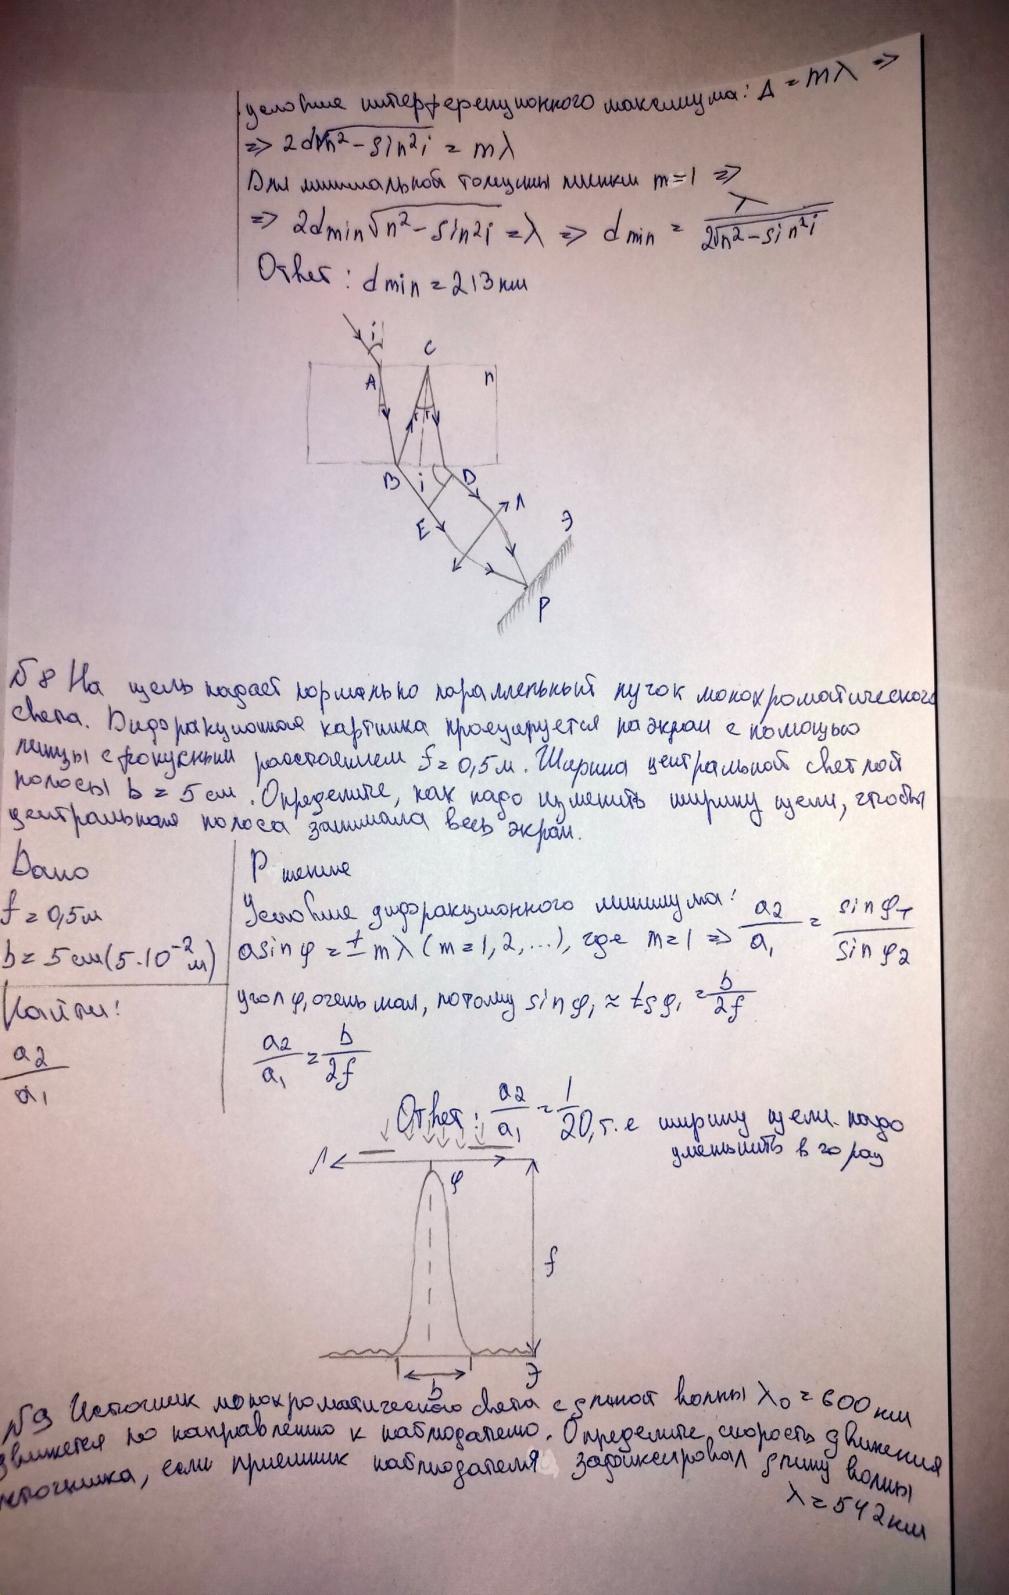 условие интерференционного максимума: Δ = mλ ⇒
⇒ 2d√n²-sin²i = mλ
Для минимальной толщины пленки m=1 ⇒
⇒ 2dmin√n²-sin²i = λ ⇒ dmin = λ/2√n²-sin²i
Ответ: dmin = 213 нм
i
A
C
n
r r
B
i
D
E
Л
Э
P
№8 На щель падает нормально параллельный пучок монохроматического
света. Дифракционная картинка проецируется на экран с помощью
линзы с фокусным расстоянием f = 0,5 м. Ширина центральной светлой
полосы b = 5 см. Определите, как надо изменить ширину щели, чтобы
центральная полоса занимала весь экран.
Дано
f = 0,5м
b = 5 см (5·10⁻² м)
Найти:
a₂/a₁
Р шение
Условие дифракционного минимума:
a sin φ = ± mλ (m=1,2,...), где m=1 ⇒ a₂/a₁ = sin φ₁/sin φ₂
угол φ₁ очень мал, потому sin φ₁ ≈ tg φ₁ = b/2f
a₂/a₁ = b/2f
Ответ: a₂/a₁ = 1/20, т.е ширину щели надо
уменьшить в 20 раз
Л
φ
f
b
Э
№9 Источник монохроматического света с длиной волны λ₀ = 600 нм
движется по направлению к наблюдателю. Определите скорость движения
источника, если приемник наблюдателя зафиксировал длину волны
λ = 542 нм